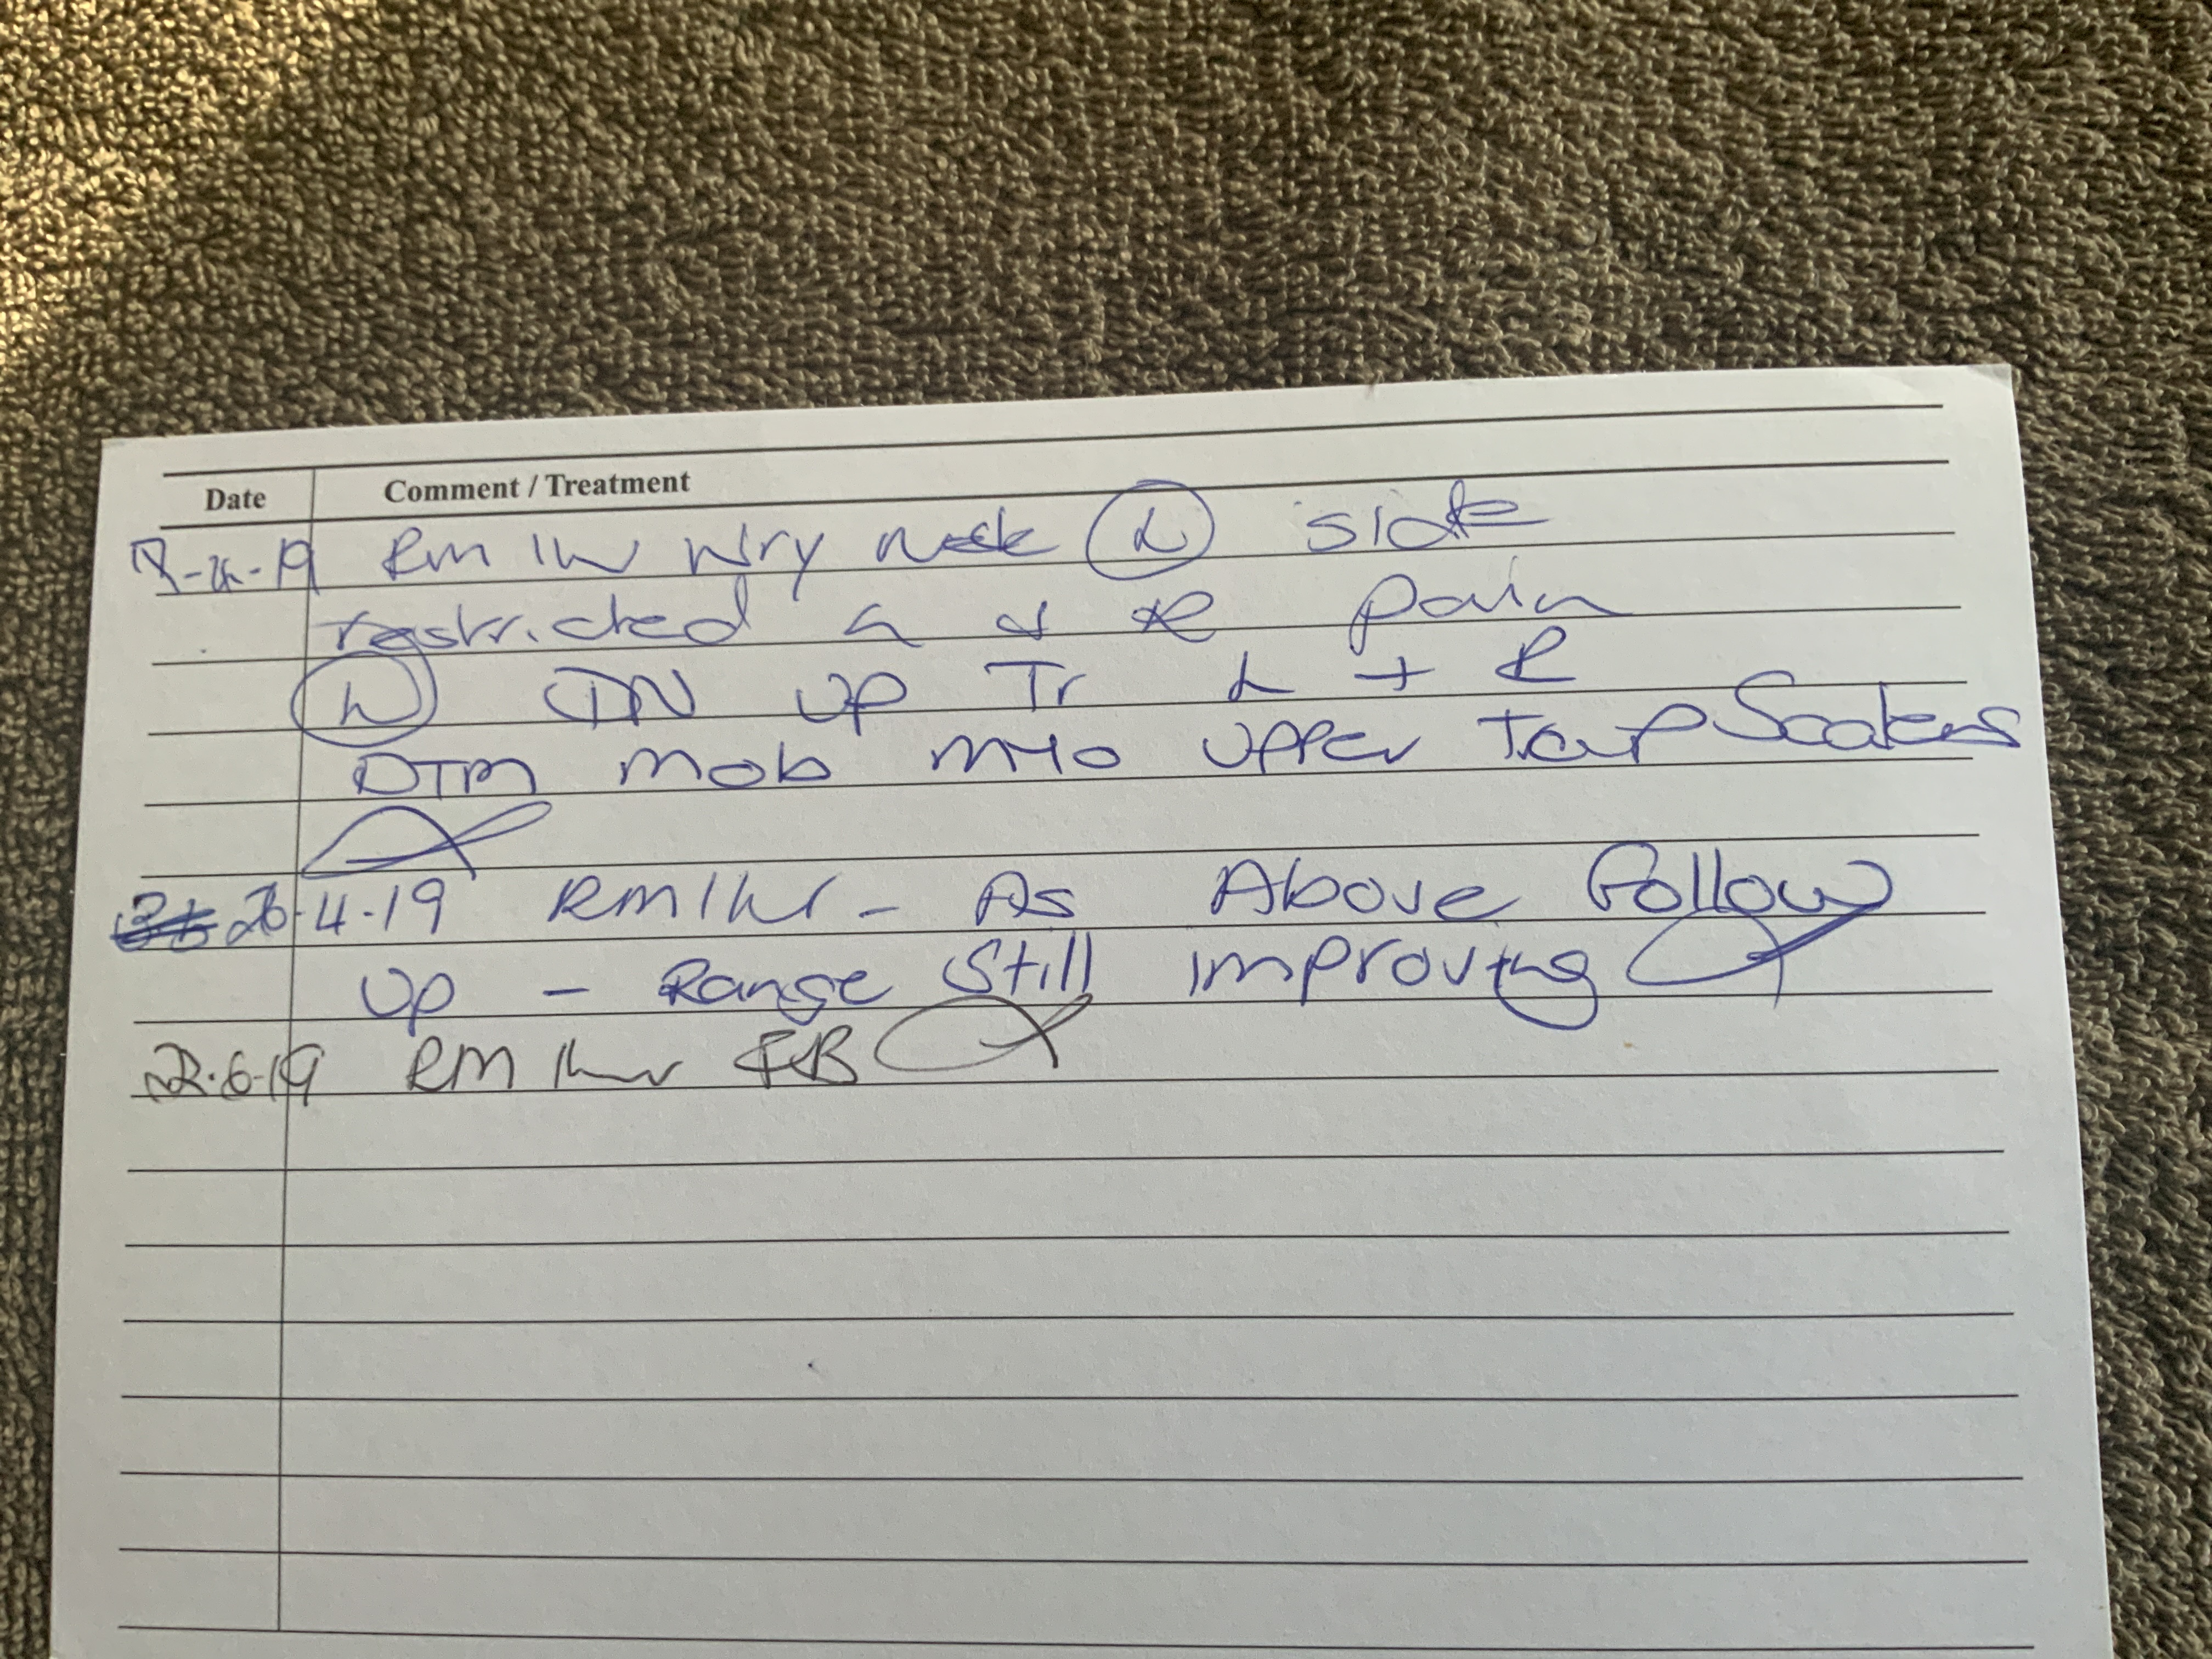 Date Comment / Treatment
RM 1hr Wry neck L side
restricted L & R pain
L DN UP Tr L + R
DTM Mob MYO UPPer Trap Scalens
26-4-19 RM 1hr - As Above Follow
Up - Range Still improving
22.6.19 RM 1hr FB